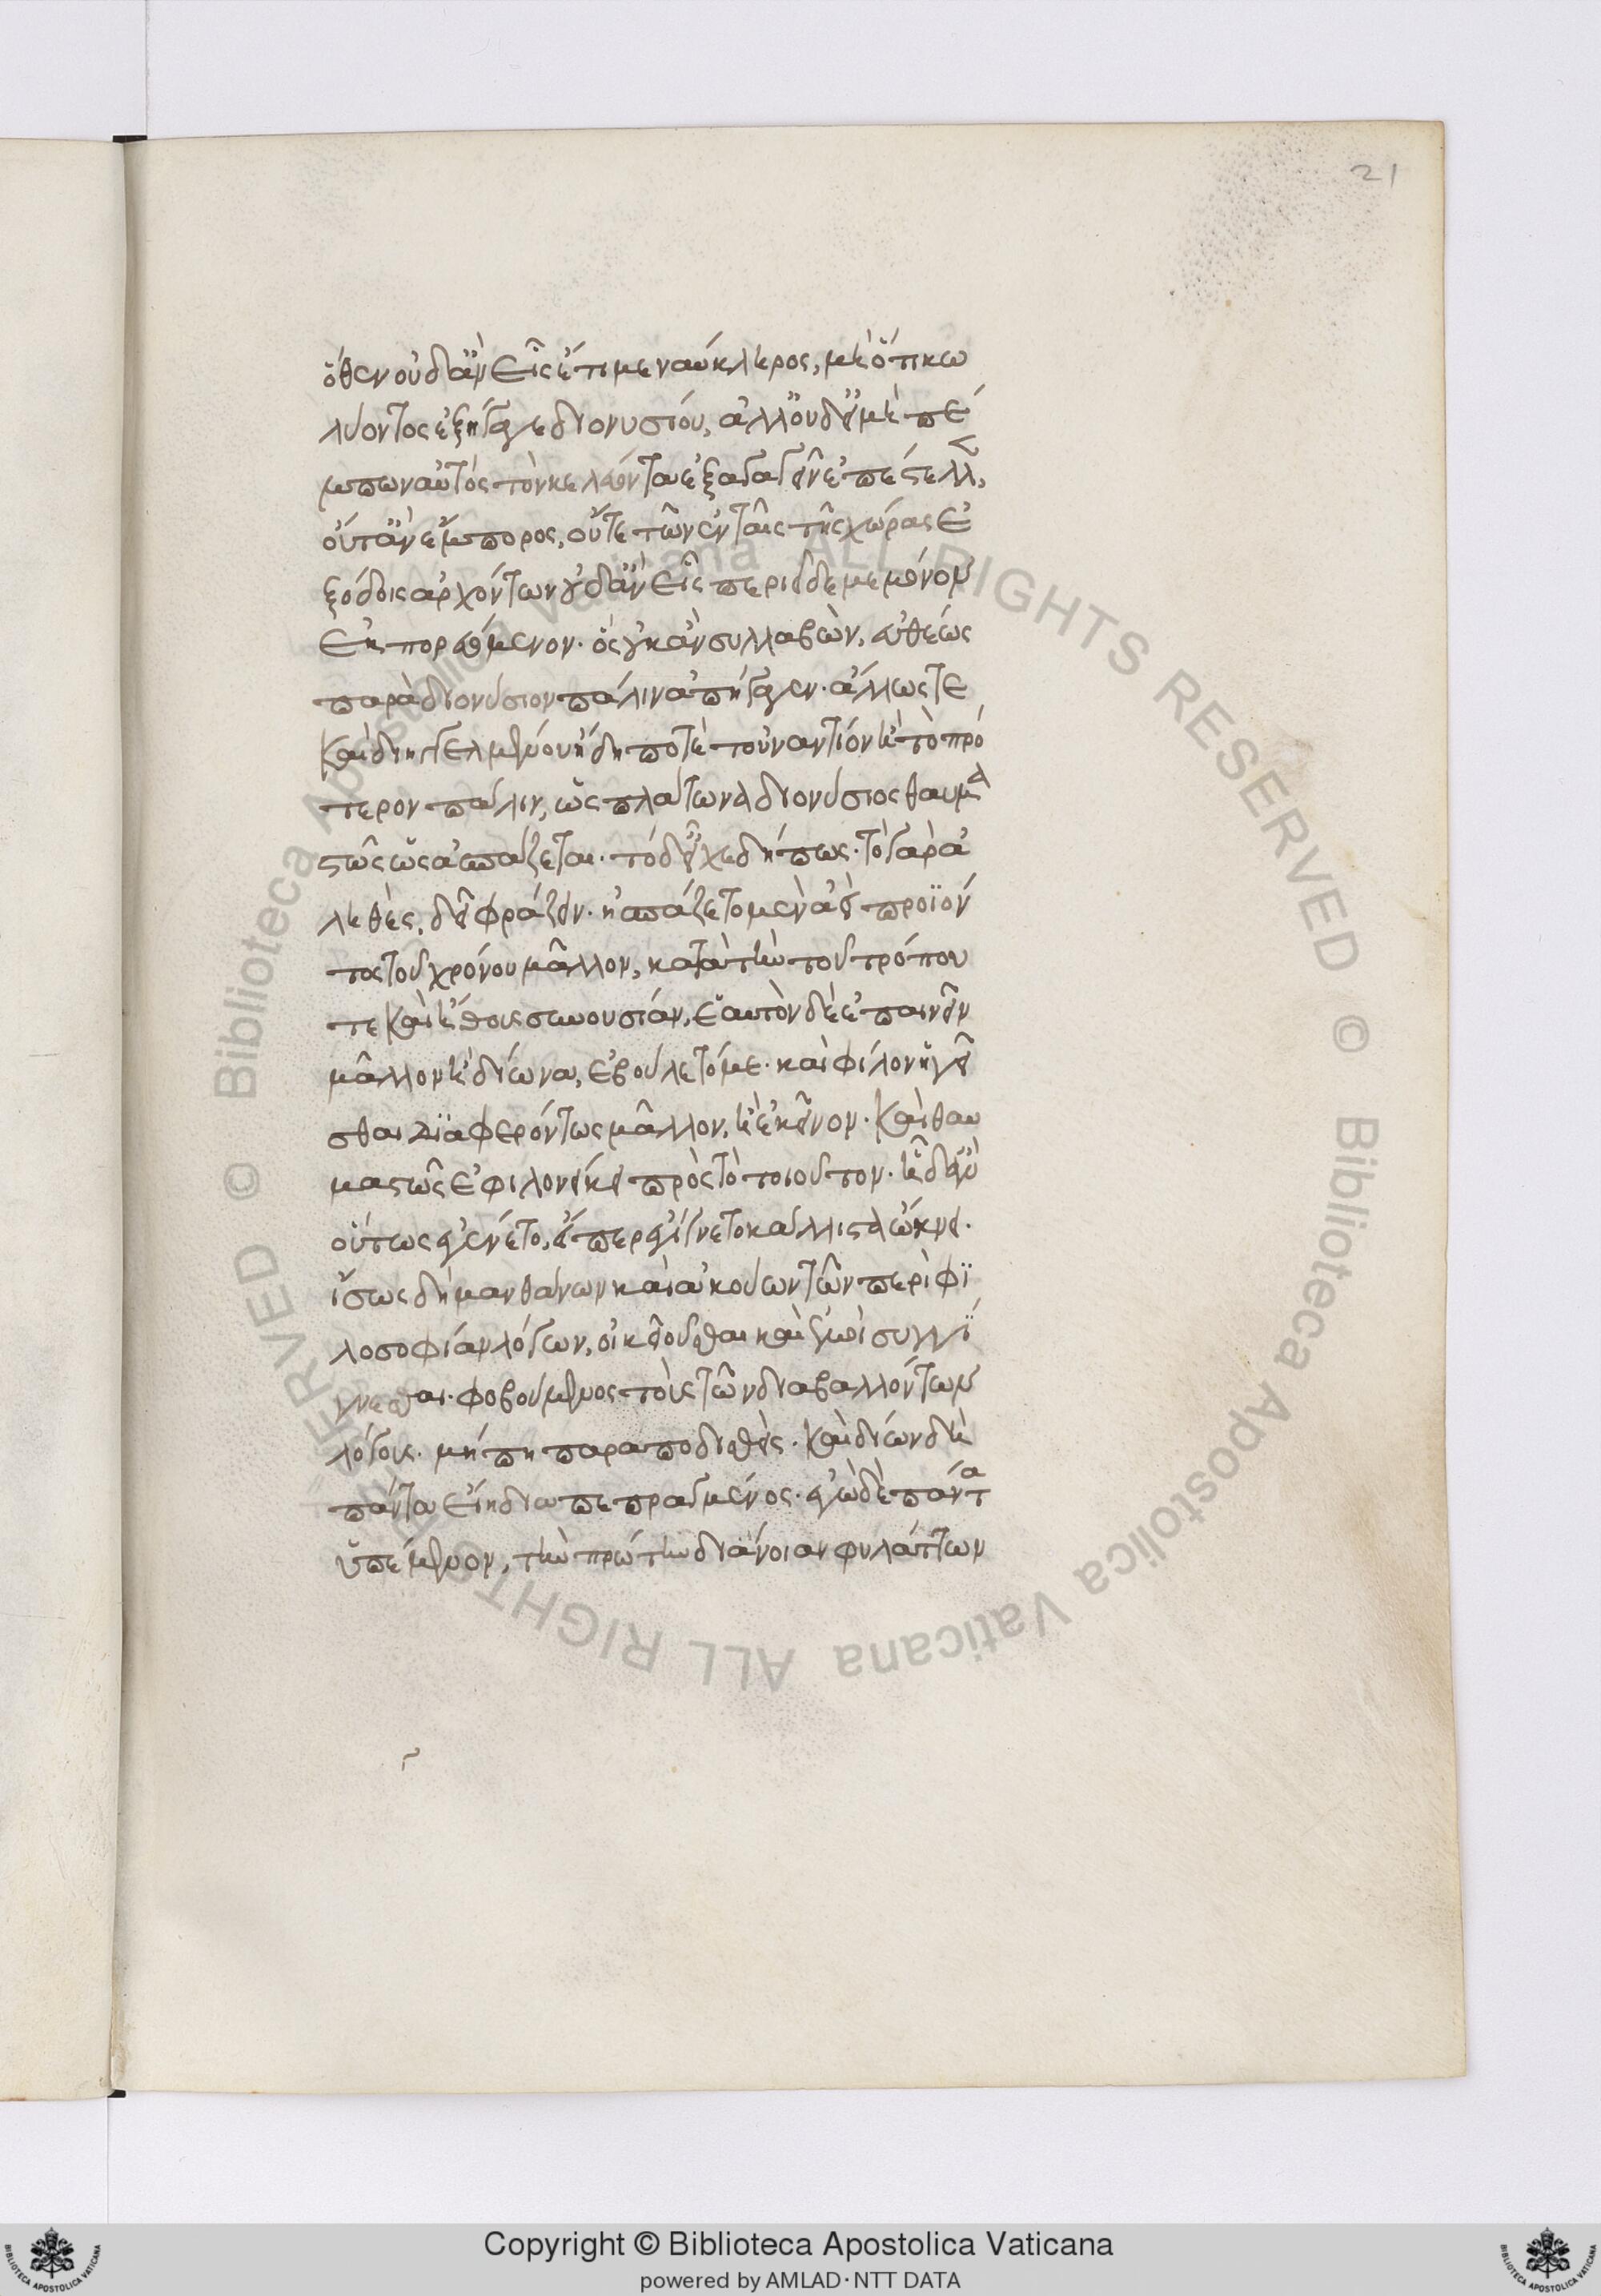 21
ὅθεν οὐδ' ἂν εἷς ἔτι με ναύκληρος, μὴ ὅτι κω
λύοντος ἐξήγαγε διονυσίου, ἀλλ' οὐδ' εἰ μὴ πέ
μπων αὐτὸς τὸν κελεύοντα ἐξαγαγεῖν ἐπέστελλε,
οὔτ' ἂν ἔμπορος, οὔτε τῶν ἐν ταῖς τῆς χώρας ἐ
ξόδοις ἀρχόντων οὐδ' ἂν εἷς περιεῖδε με μόνον
ἐκπορευόμενον. ὃς οὐκ ἂν συλλαβὼν, εὐθέως
παρὰ διονύσιον πάλιν ἀπήγαγεν. ἄλλως τε
καὶ διηγγελμένον ἤδη ποτὲ τοὐναντίον ἢ τὸ πρό
τερον πάλιν, ὡς πλάτωνα διονύσιος θαυμα
στῶς ὡς ἀσπάζεται. τὸ δ' εἶχε δή πως. τὸ γὰρ ἀ
ληθὲς, δεῖ φράζειν. ἠσπάζετο μὲν ἀεὶ προϊόν
τος τοῦ χρόνου μᾶλλον, κατὰ τὴν τοῦ τρόπου
τε καὶ ἤθους συνουσίαν, ἑαυτὸν δὲ ἐπαινεῖν
μᾶλλον ἢ δίωνα, ἐβούλετό με. καὶ φίλον ἡγεῖ
σθαι διαφερόντως μᾶλλον, ἢ ἐκεῖνον. καὶ θαυ
μαστῶς ἐφιλονείκει πρὸς τὸ τοιοῦτον. ᾗ δ' ἂν
οὕτως ἐγένετο, εἴπερ ἐγίγνετο κάλλιστα ὤκνει.
ἴσως δὴ μανθάνων καὶ ἀκούων τῶν περὶ φι
λοσοφίαν λόγων, οἰκειοῦσθαι καὶ ἐμοὶ συγγί
γνεσθαι. φοβούμενος τοὺς τῶν διαβαλλόντων
λόγους. μή πη παραποδισθεὶς. καὶ δίων δὴ
πάντα εἴη διαπεπραγμένος. ἐγὼ δὲ πάντα
ὑπέμενον, τὴν πρώτην διάνοιαν φυλάττων
© Biblioteca Apostolica Vaticana ALL RIGHTS RESERVED © Biblioteca Apostolica Vaticana ALL RIGHTS RESERVED
Copyright © Biblioteca Apostolica Vaticana
powered by AMLAD·NTT DATA
BIBLIOTECA APOSTOLICA VATICANA
BIBLIOTECA APOSTOLICA VATICANA